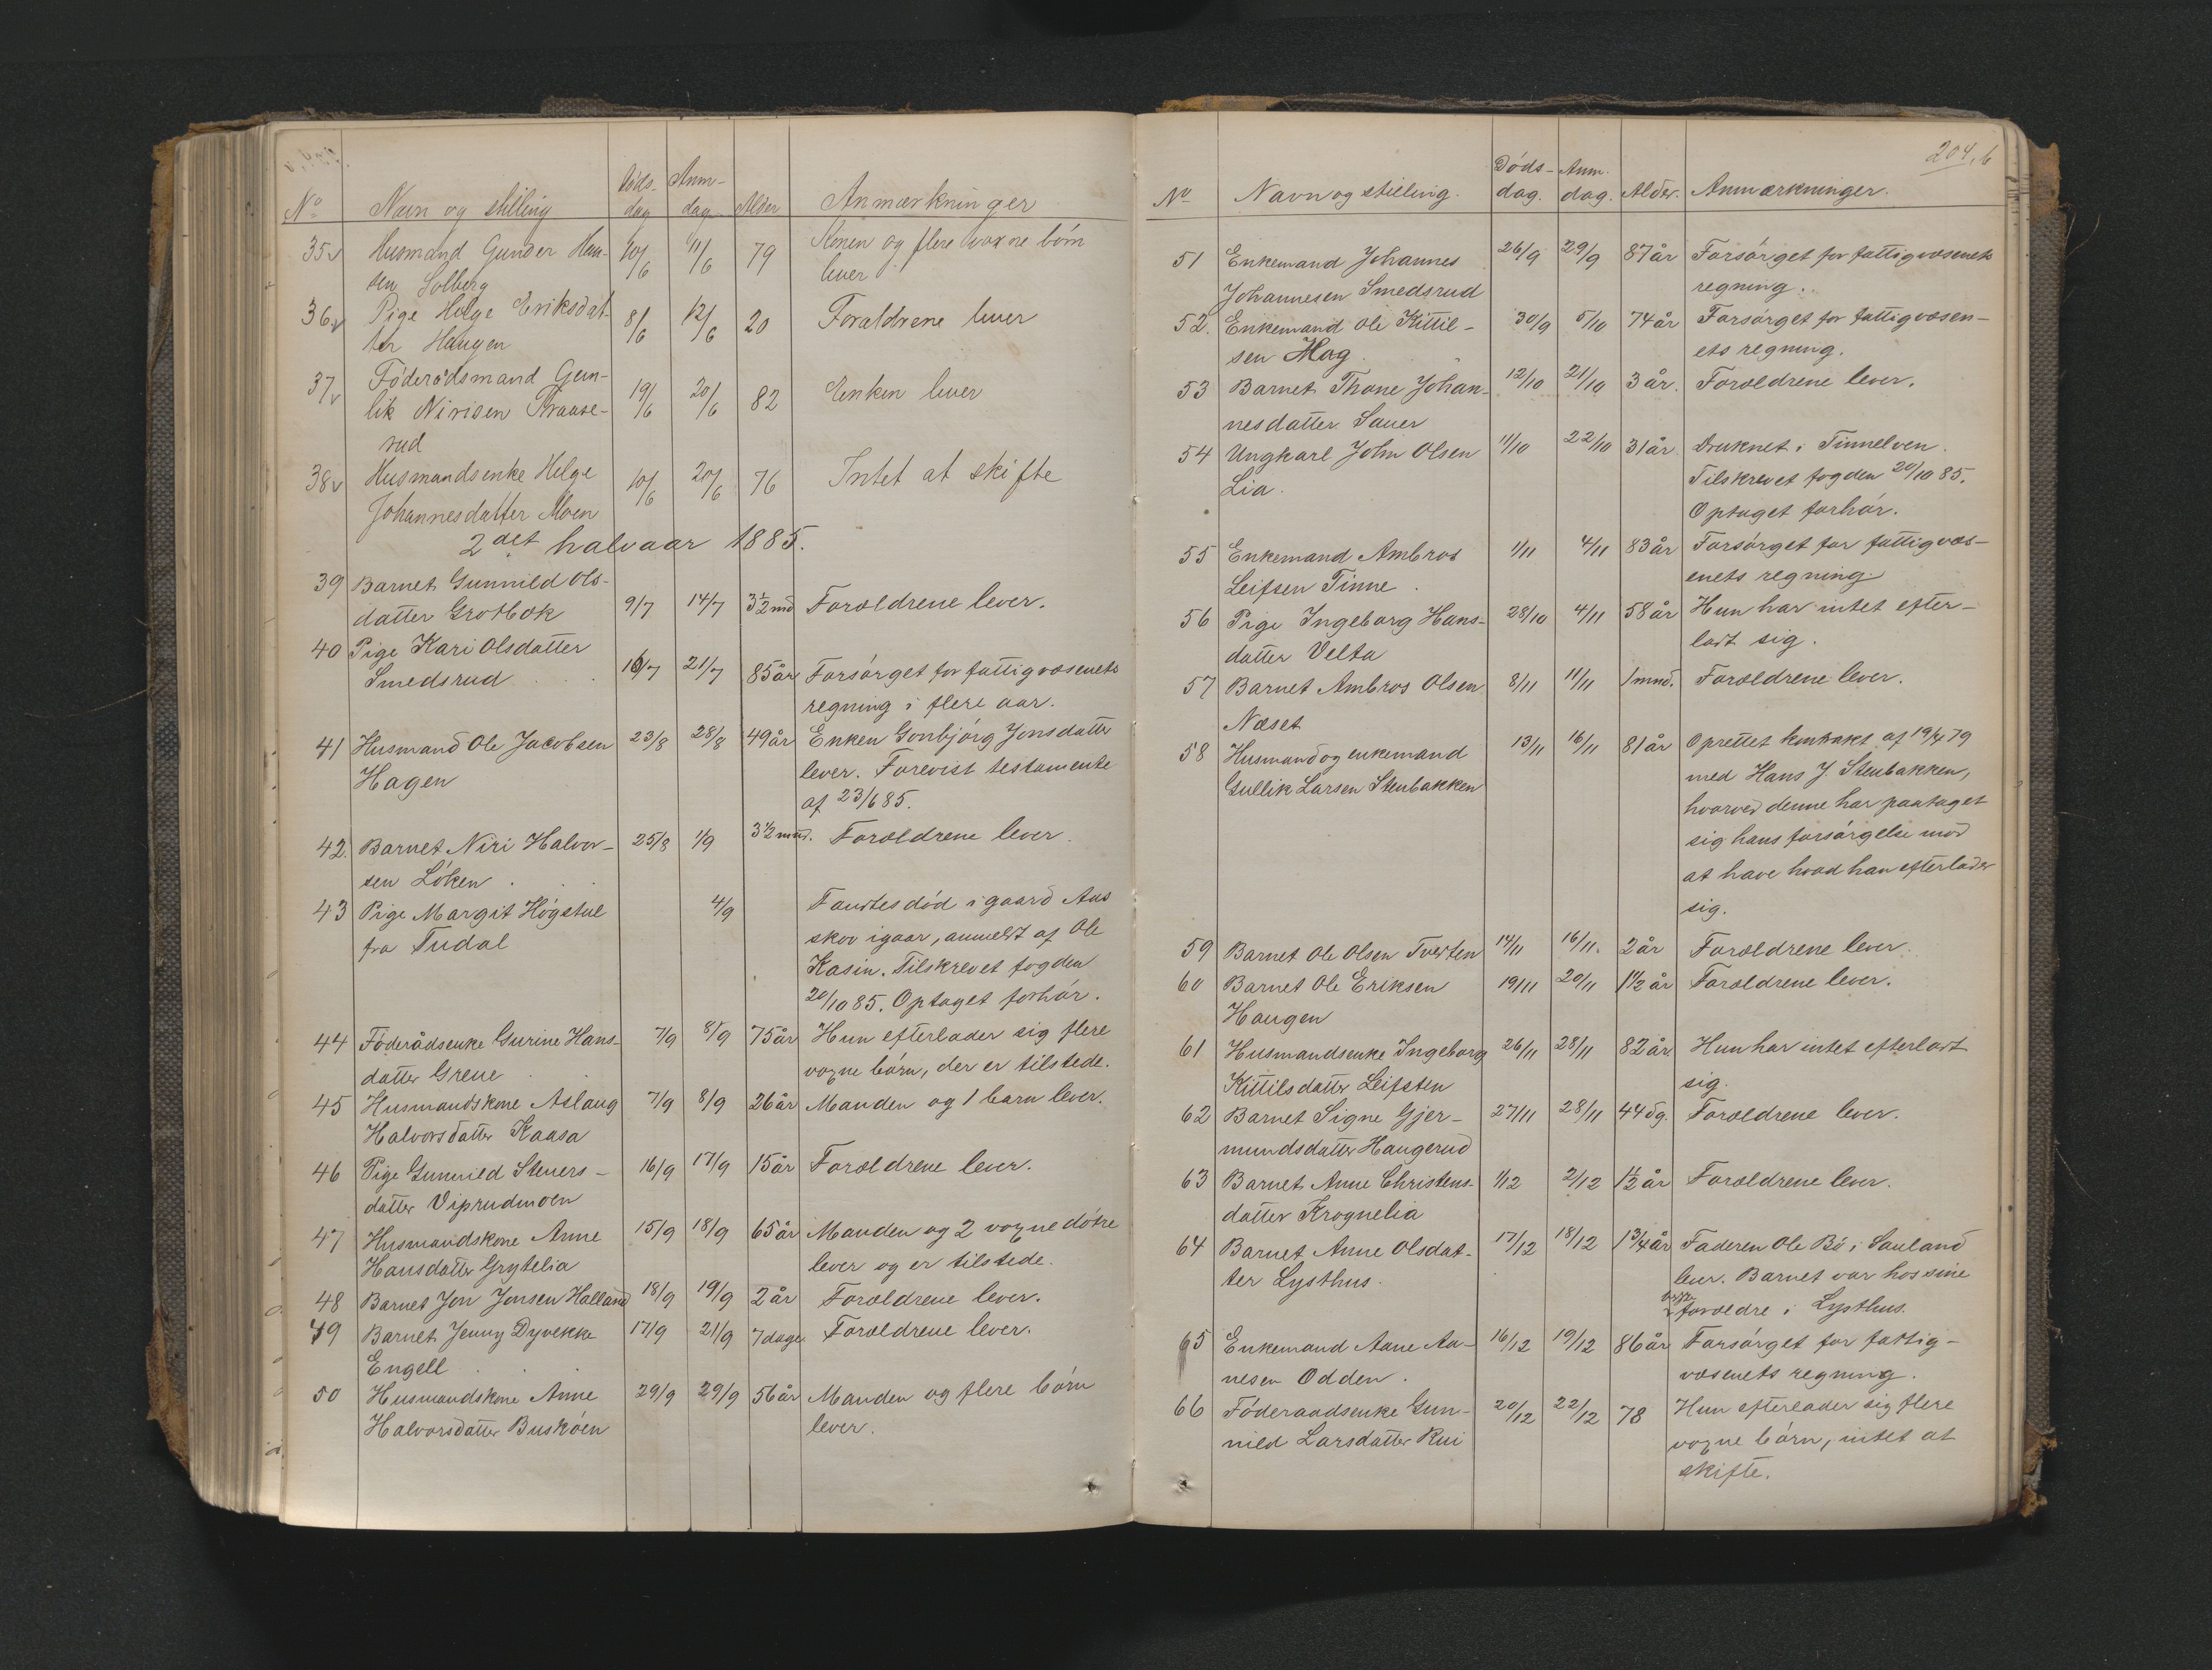 No Navn og stilling Døds- dag Anm- dag Alder Anmærkninger
35 Husmand Gunder Han- 10/6 11/6 79 Konen og flere voxne børn
sen Solberg lever
36 Pige Helge Eriksdat- 8/6 12/6 20 Forældrene lever
ter Haugen
37 Föderådsmand Gun- 19/6 20/6 82 Enken lever
lik Nirisen Kraase-
rud
38 Husmandsenke Helge 10/6 20/6 76 Intet at skifte
Johannesdatter Moen
2det halvaar 1885.
39 Barnet Gunnild Ols-
datter Grotbæk 9/7 14/7 3½ md Forældrene lever.
40 Pige Kari Olsdatter
Smedsrud 16/7 21/7 85 år Forsørget for fattigvæsenets
regning i flere aar.
41 Husmand Ole Jacobsen 23/8 28/8 49 år Enken Gonbjørg Jonsdatter
Hagen lever. Forevist testamente
af 23/6 85.
42. Barnet Niri Halvor- 25/8 1/9 3½ mnd. Forældrene lever.
sen Löken
43 Pige Margit Høgstul 4/9 Fandtes død i gaard Aas
fra Tudal skov igaar, anmeldt af Ole
Kasin. Tilskrevet fogden
20/10 85. Optaget forhør.
44 Föderådsenke Gurine Hans- 7/9 8/9 75 år Hun efterlader sig flere
datter Grene voxne børn, der er tilstede.
45 Husmandskone Aslaug 7/9 8/9 26 år Manden og 1 barn lever.
Halvorsdatter Kaasa
46 Pige Gunnild Steners- 16/9 17/9 15 år Forældrene lever.
datter Viprudmoen
47 Husmandskone Anne 15/9 18/9 65 år Manden og 2 voxne døtre
Hansdatter Grytelia lever og er tilstede.
48 Barnet Jon Jonsen Halland 18/9 19/9 2 år Forældrene lever.
49 Barnet Jenny Dyvekke 17/9 21/9 7 dage Forældrene lever.
Engell
50 Husmandskone Anne 29/9 29/9 56 år Manden og flere børn
Halvorsdatter Buskøen lever.
204, b
No Navn og stilling. Døds- dag. Anm. dag. Alder. Anmærkninger.
51 Enkemand Johannes 26/9 29/9 87 år Forsørget for fattigvæsenets
Johannesen Smedsrud regning.
52. Enkemand Ole Kittil- 30/9 5/10 74 år Forsørget for fattigvæsen-
sen Hag. ets regning.
53 Barnet Thone Johan- 12/10 21/10 3 år. Forældrene lever.
nesdatter Sauer
54 Ungkarl John Olsen 11/10 22/10 31 år Druknet i Tinnelven.
Lia. Tilskrevet fogden 20/10 85.
Optaget forhør.
55 Enkemand Ambros 1/11 4/11 83 år Forsørget for fattigvæs-
Leifsen Tinne. enets regning.
56 Pige Ingeborg Hans- 28/10 4/11 58 år Hun har intet efter-
datter Velta ladt sig.
57 Barnet Ambros Olsen 8/11 11/11 1 mnd. Forældrene lever.
Næset
58 Husmand og enkemand 13/11 16/11 81 år Oprettet kontrakt af 19/4 79
Gullik Larsen Stenbakken med Hans J. Stenbakken,
hvorved denne har paataget
sig hans forsørgelse mod
at have hvad han efterlader
sig.
59 Barnet Ole Olsen Tveten 14/11 16/11. 2 år Forældrene lever.
60 Barnet Ole Eriksen 19/11 20/11 1½ år Forældrene lever.
Haugen
61 Husmandsenke Ingeborg 26/11 28/11 82 år. Hun har intet efterladt
Kittilsdatter Leifsten sig.
62 Barnet Signe Gjer- 27/11 28/11 44 dg. Forældrene lever.
mundsdatter Haugerud
63 Barnet Anne Christens- 1/12 2/12 ½ år Forældrene lever.
datter Krognelia
64 Barnet Anne Olsdat- 17/12 18/12 1¾ år Faderen Ole Bö i Sauland
ter Lysthus. lever. Barnet var hos sine
forældre i Lysthus.
65 Enkemand Aane Aa- 16/12 19/12 86 år Forsørget for fattig-
nesen Odden. væsenets regning.
66 Föderaadsenke Gun- 20/12 22/12 78 Hun efterlader sig flere
nild Larsdatter Rui voxne børn, intet at
skifte.